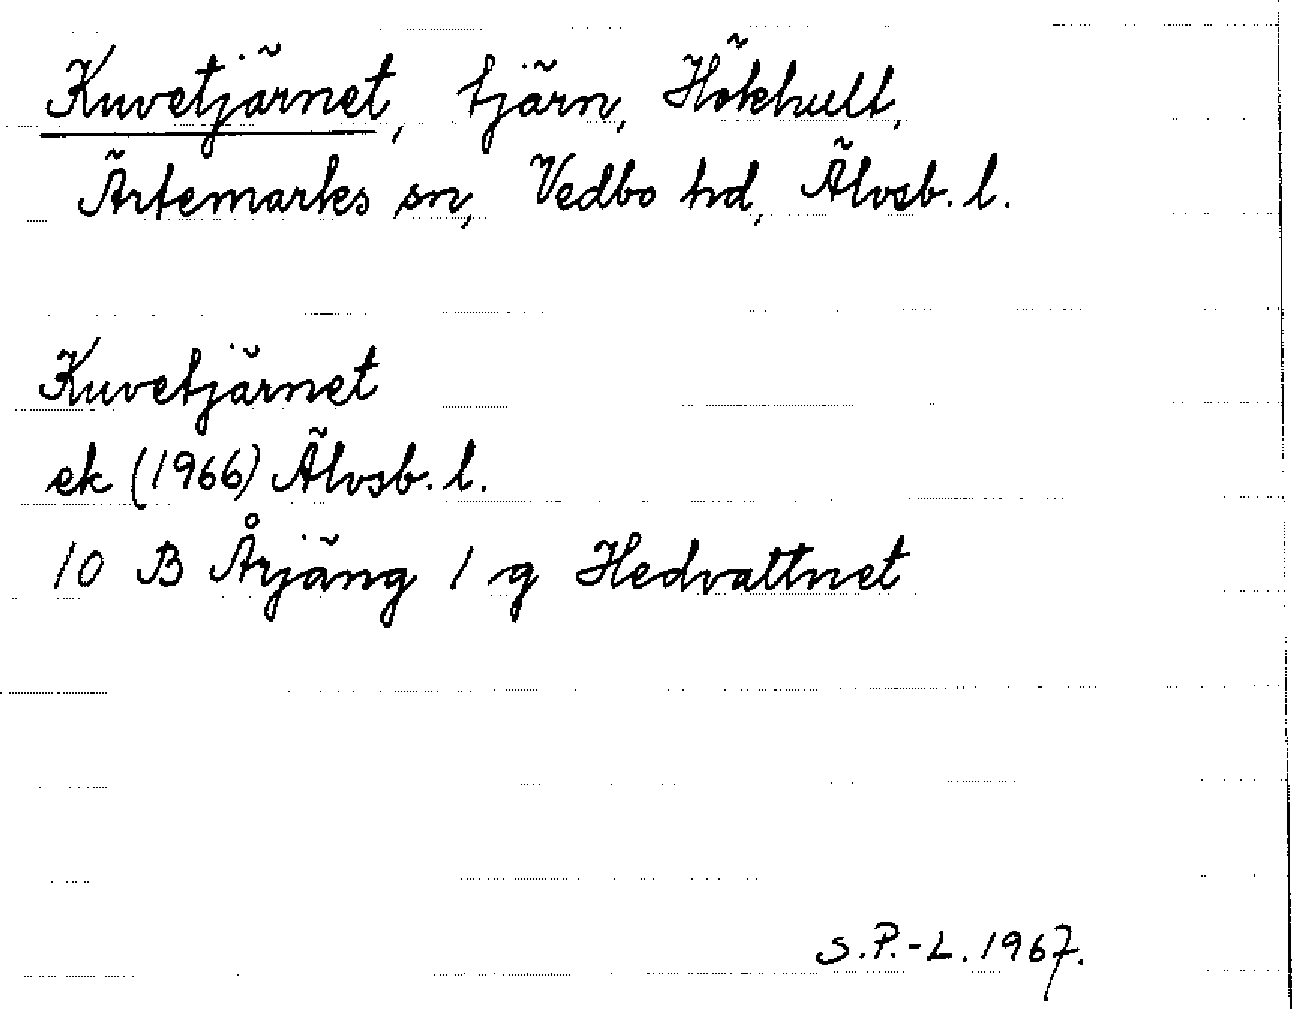 Kuvetjärnet, tjärn, Hökhult,
Ärtemarks sn, Vedbo hd, Älvsb. l.
Kuvetjärnet
ek (1966) Älvsb. l.
10 B Årjäng 1 g Hedvattnet
S.P.-L. 1967.